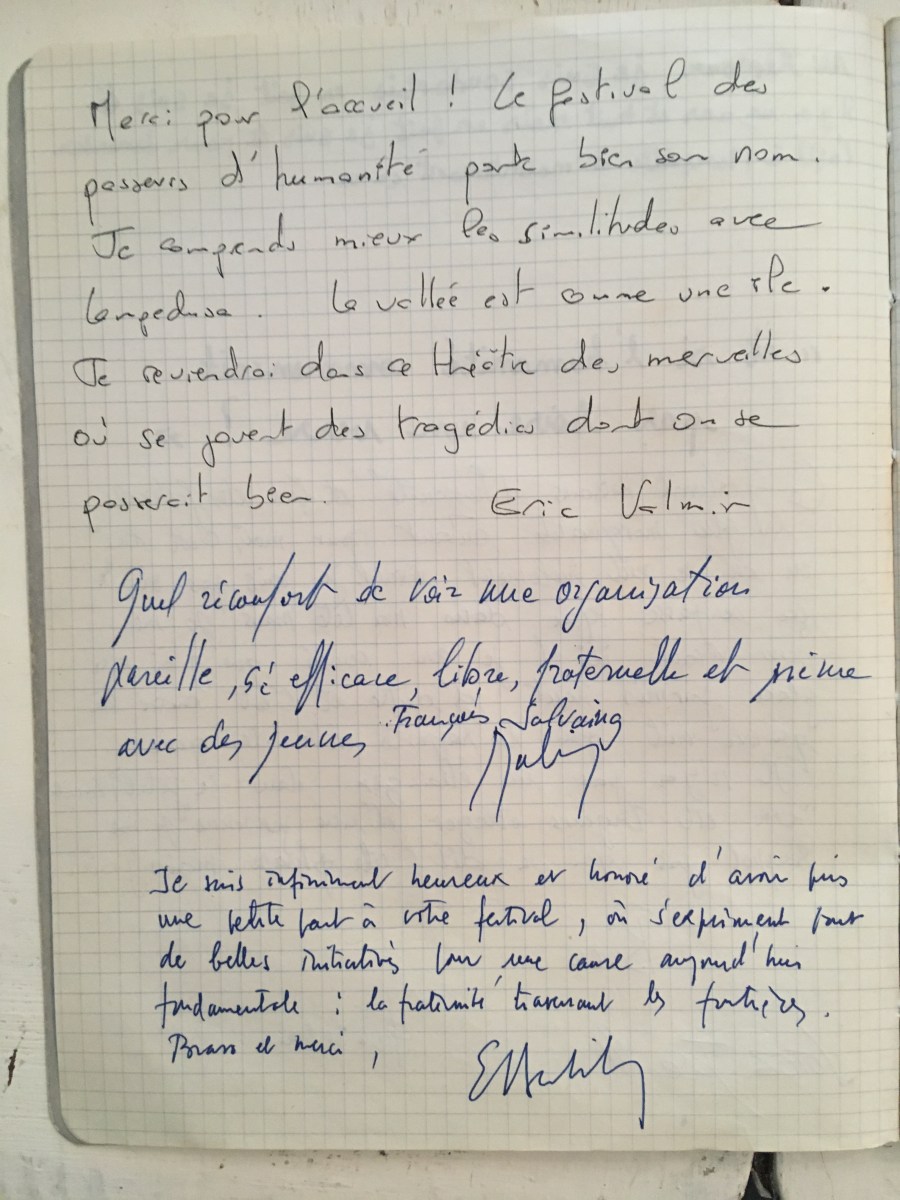 Merci pour l'accueil ! Le festival des
passeurs d'humanité porte bien son nom.
Je comprends mieux les similitudes avec
Lampedusa. La vallée est comme une île.
Je reviendrai dans ce théâtre des merveilles
où se jouent des tragédies dont on se
passerait bien. Eric Valmir
Quel réconfort de voir une organisation
pareille, si efficace, libre, fraternelle et
avec des jeunes François Salvaing
Je suis infiniment heureux et honoré d'avoir pris
une petite part à votre festival, où s'expriment tant
de belles initiatives pour une cause aujourd'hui
fondamentale : la fraternité traversant les frontières.
Bravo et merci,